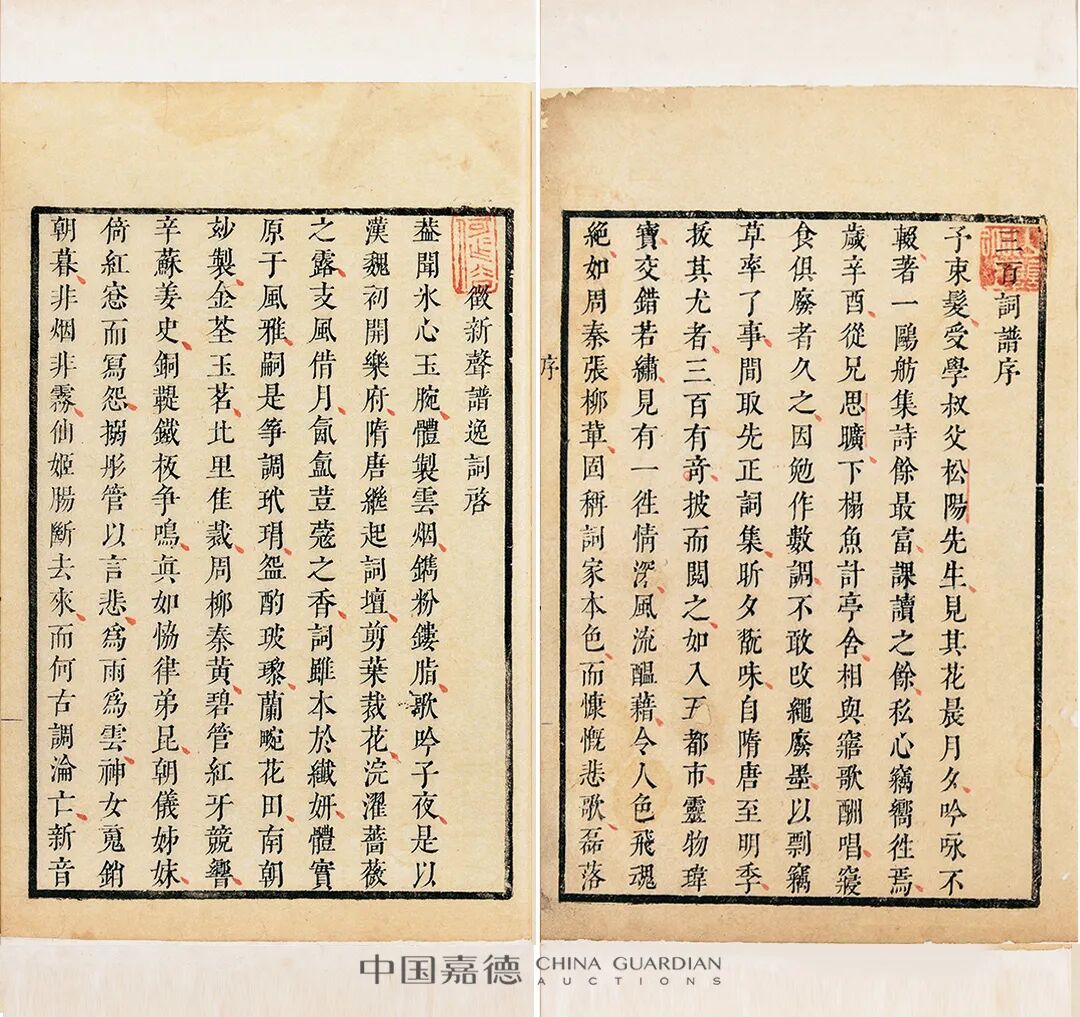 三百詞譜序
予束髮受學叔父松陽先生見其花晨月夕吟咏不
輟著一鷗舫集詩餘最富課讀之餘私心竊嚮徃焉
歲辛酉從兄思曠下榻魚計亭舍相與寤歌酬唱寢
食俱廢者久之因勉作數調不敢改繩廢墨以剽竊
草率了事間取先正詞集昕夕翫味自隋唐至明季
拔其尤者三百有竒披而閱之如入五都市靈物瑋
寶交錯若繡見有一徃情深風流醖藉令人色飛魂
絶如周秦張柳草固稱詞家本色而慷慨悲歌磊落
序
徵新聲譜逸詞啓
葢聞氷心玉腕體製雲烟鐫粉鏤脂歌吟子夜是以
漢魏初開樂府隋唐繼起詞壇剪葉裁花浣濯薔薇
之露支風借月氤氳荳蔻之香詞雖本於纖妍體實
原于風雅嗣是箏調玳瑁盌酌玻瓈蘭畹花田南朝
玅製金荃玉茗北里隹裁周柳秦黄碧管紅牙競響
辛蘇姜史銅鞮鐵板争鳴眞如恊律弟昆朝儀姊妹
倚紅窓而寫怨搦彤管以言悲爲雨爲雲神女䰟銷
朝暮非烟非霧仙姬腸斷去來而何古調淪亡新音
中国嘉德 CHINA GUARDIAN AUCTIONS